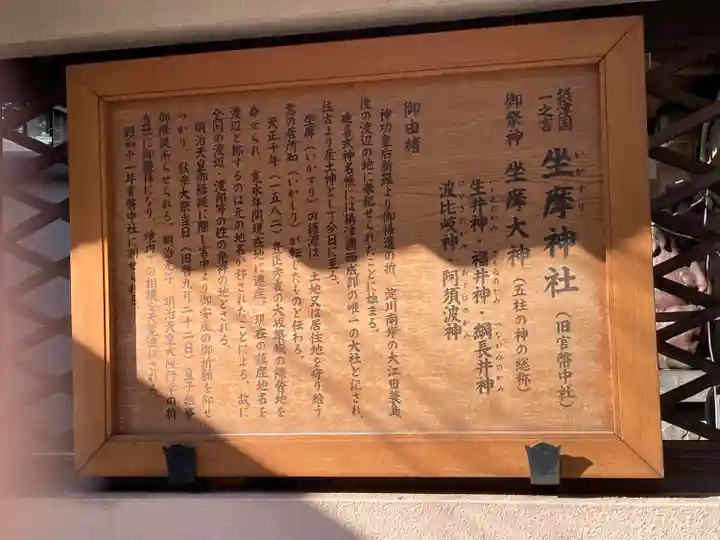 摂津国
一之宮
坐摩神社（旧官幣中社）
いかすり
御祭神 坐摩大神（五柱の神の総称）
生井神・福井神・綱長井神
いくゐのかみ さくゐのかみ つながゐのかみ
波比岐神・阿須波神
はひきのかみ あすはのかみ
御由緒
神功皇后新羅より御帰還の折、淀川南岸の大江田蓑島
後の渡辺の地に奉祀せられたことに始まる。
延喜式神名帳には摂津國西成郡の唯一の大社と記され、
往古より産土神として今日に至る。
坐摩（いかすり）の語源は、土地又は居住地を守り給う
意の居所知（いかしり）が転じたものと伝わる。
天正十年（一五八二）豊臣秀吉の大坂築城の際替地を
命せられ、寛永年間現在地に遷座。現在の鎮座地名を
渡辺と称するのは元の地名が移されたことによる。故に
全国の渡辺・渡部等の姓の発祥の地とされる。
明治天皇御降誕に際し宮中より御安産の御祈願を仰せ
つかり、秋季大祭当日（旧暦九月二十二日）皇子無事
御降誕あらせられる。明治元年、明治天皇大阪行幸の折
当社に御親拝になり、境内で相撲を天覧遊ばされた。
昭和十一年官幣中社に列せられる。